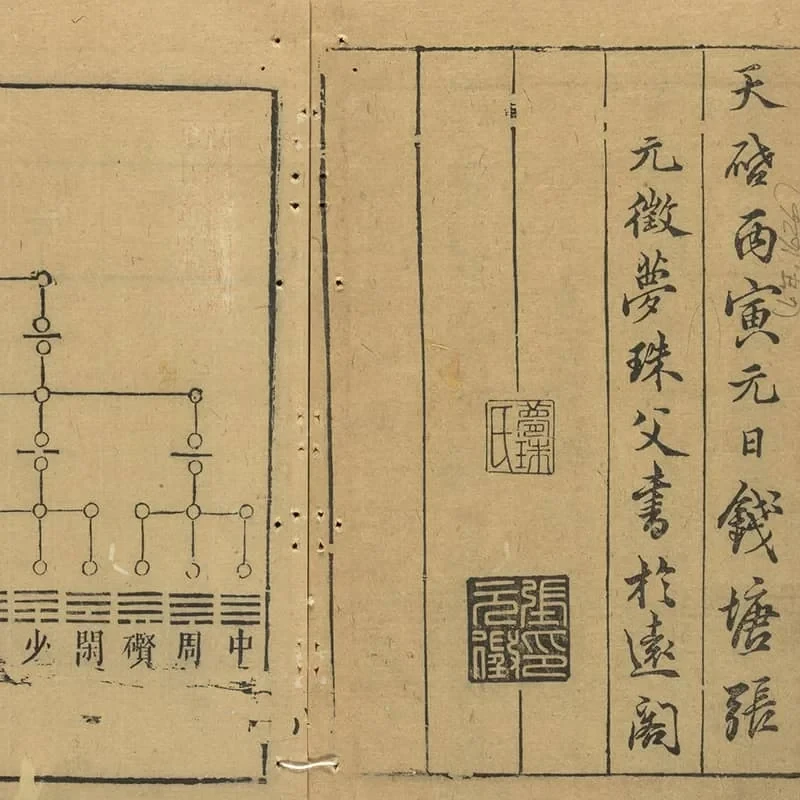 天啓丙寅元日錢塘張
元徵夢珠父書於遠閣
夢珠
氏
張印
元徵
中
周
礥
閑
少